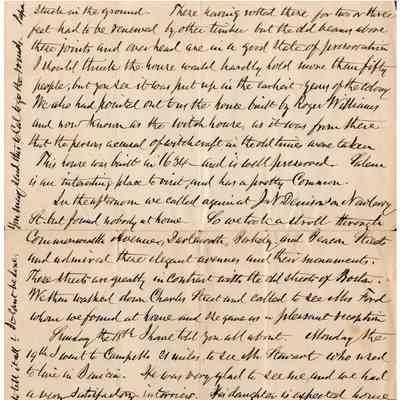 stuck in the ground. There having rotted there for two or three
feet had to be renewed by other timber but the old beams above
these joints and over head are in a good state of preservation
I should think the house would hardly hold more than fifty
people, but you see it was put up in the earliest years of the colony
We also had pointed out to us the house built by Roger Williams
and now known as the witch house, as it was from there
that the persons accused of witchcraft in the old times were taken
This house was built in 1634 and is well preserved. Salem
is an interesting place to visit, and has a pretty Common
In the afternoon we called again at J.N. Denison on Newbury
St. but found nobody at home. So we took a stroll through
Commonwealth Avenues, Dartmouth, Berkely, and Beacon Streets
and admired these elegant avenues and their monuments.
These streets are greatly in contrast with the old streets of Boston.
We then walked down Charles Street and called to see Mrs Ford
whom we found at home and she gave us a pleasant reception
Sunday the 18th I have told you all about. Monday the
19th I went to Campello 21 miles to see Mr Stewart who used
to live in He was very glad to see me and we had
a very satisfactory interview. His daughter is expected home
You may send this to Cal to go the rounds.
to tell it all &